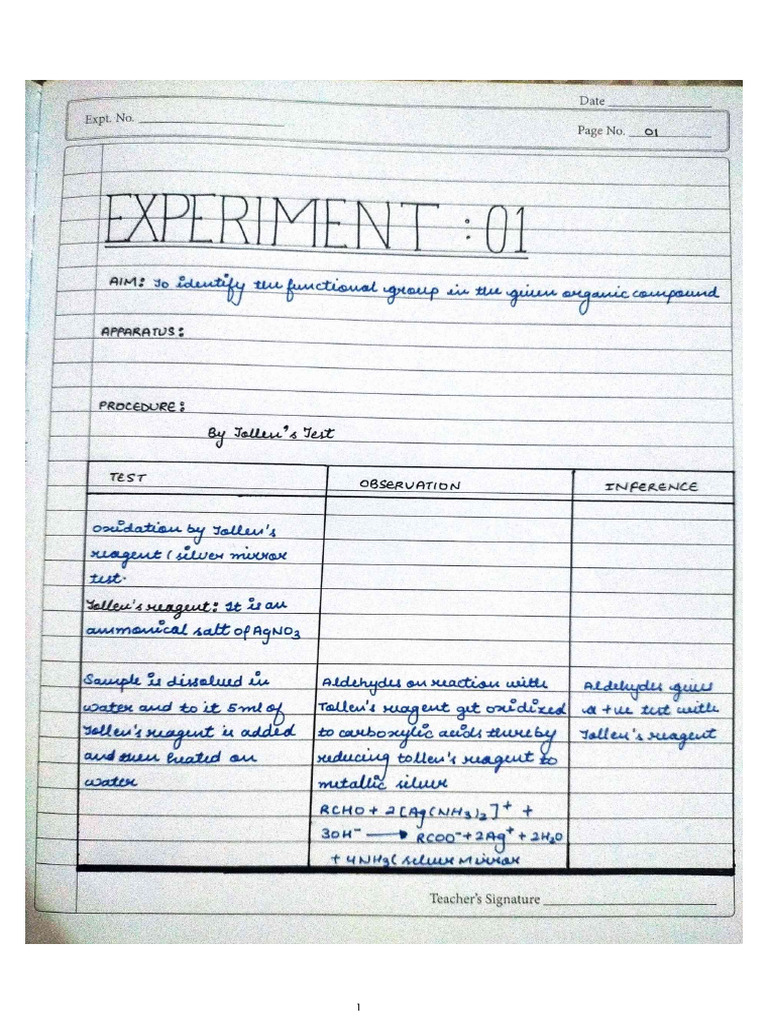 Date
Expt. No.
Page No. 01
EXPERIMENT : 01
AIM: To identify the functional group in the given organic compound
APPARATUS:
PROCEDURE:
By Tollen's Test
TEST
OBSERVATION
INFERENCE
Oxidation by Tollen's
reagent ( silver mirror
test.
Tollen's reagent: It is an
ammonical salt of AgNO3
Sample is dissolved in
water and to it 5ml of
Tollen's reagent is added
and then heated on
water
Aldehydes on reaction with
Tollen's reagent get oxidized
to carboxylic acids thereby
reducing tollen's reagent to
metallic silver
RCHO + 2[Ag(NH3)2]+ +
3OH- → RCOO- + 2Ag+ + 2H2O
+ 4NH3( silver Mirror
Aldehydes gives
a +ve test with
Tollen's reagent
Teacher's Signature
1